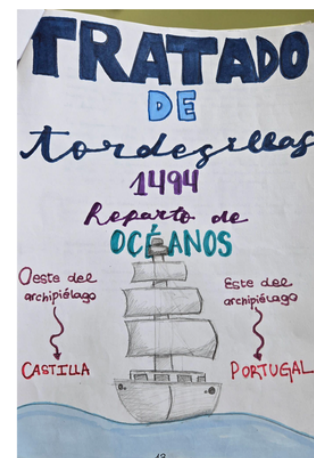 TRATADO
DE
tordesillas
1494
Reparto de
OCÉANOS
Oeste del
archipiélago
CASTILLA
Este del
archipiélago
PORTUGAL
13